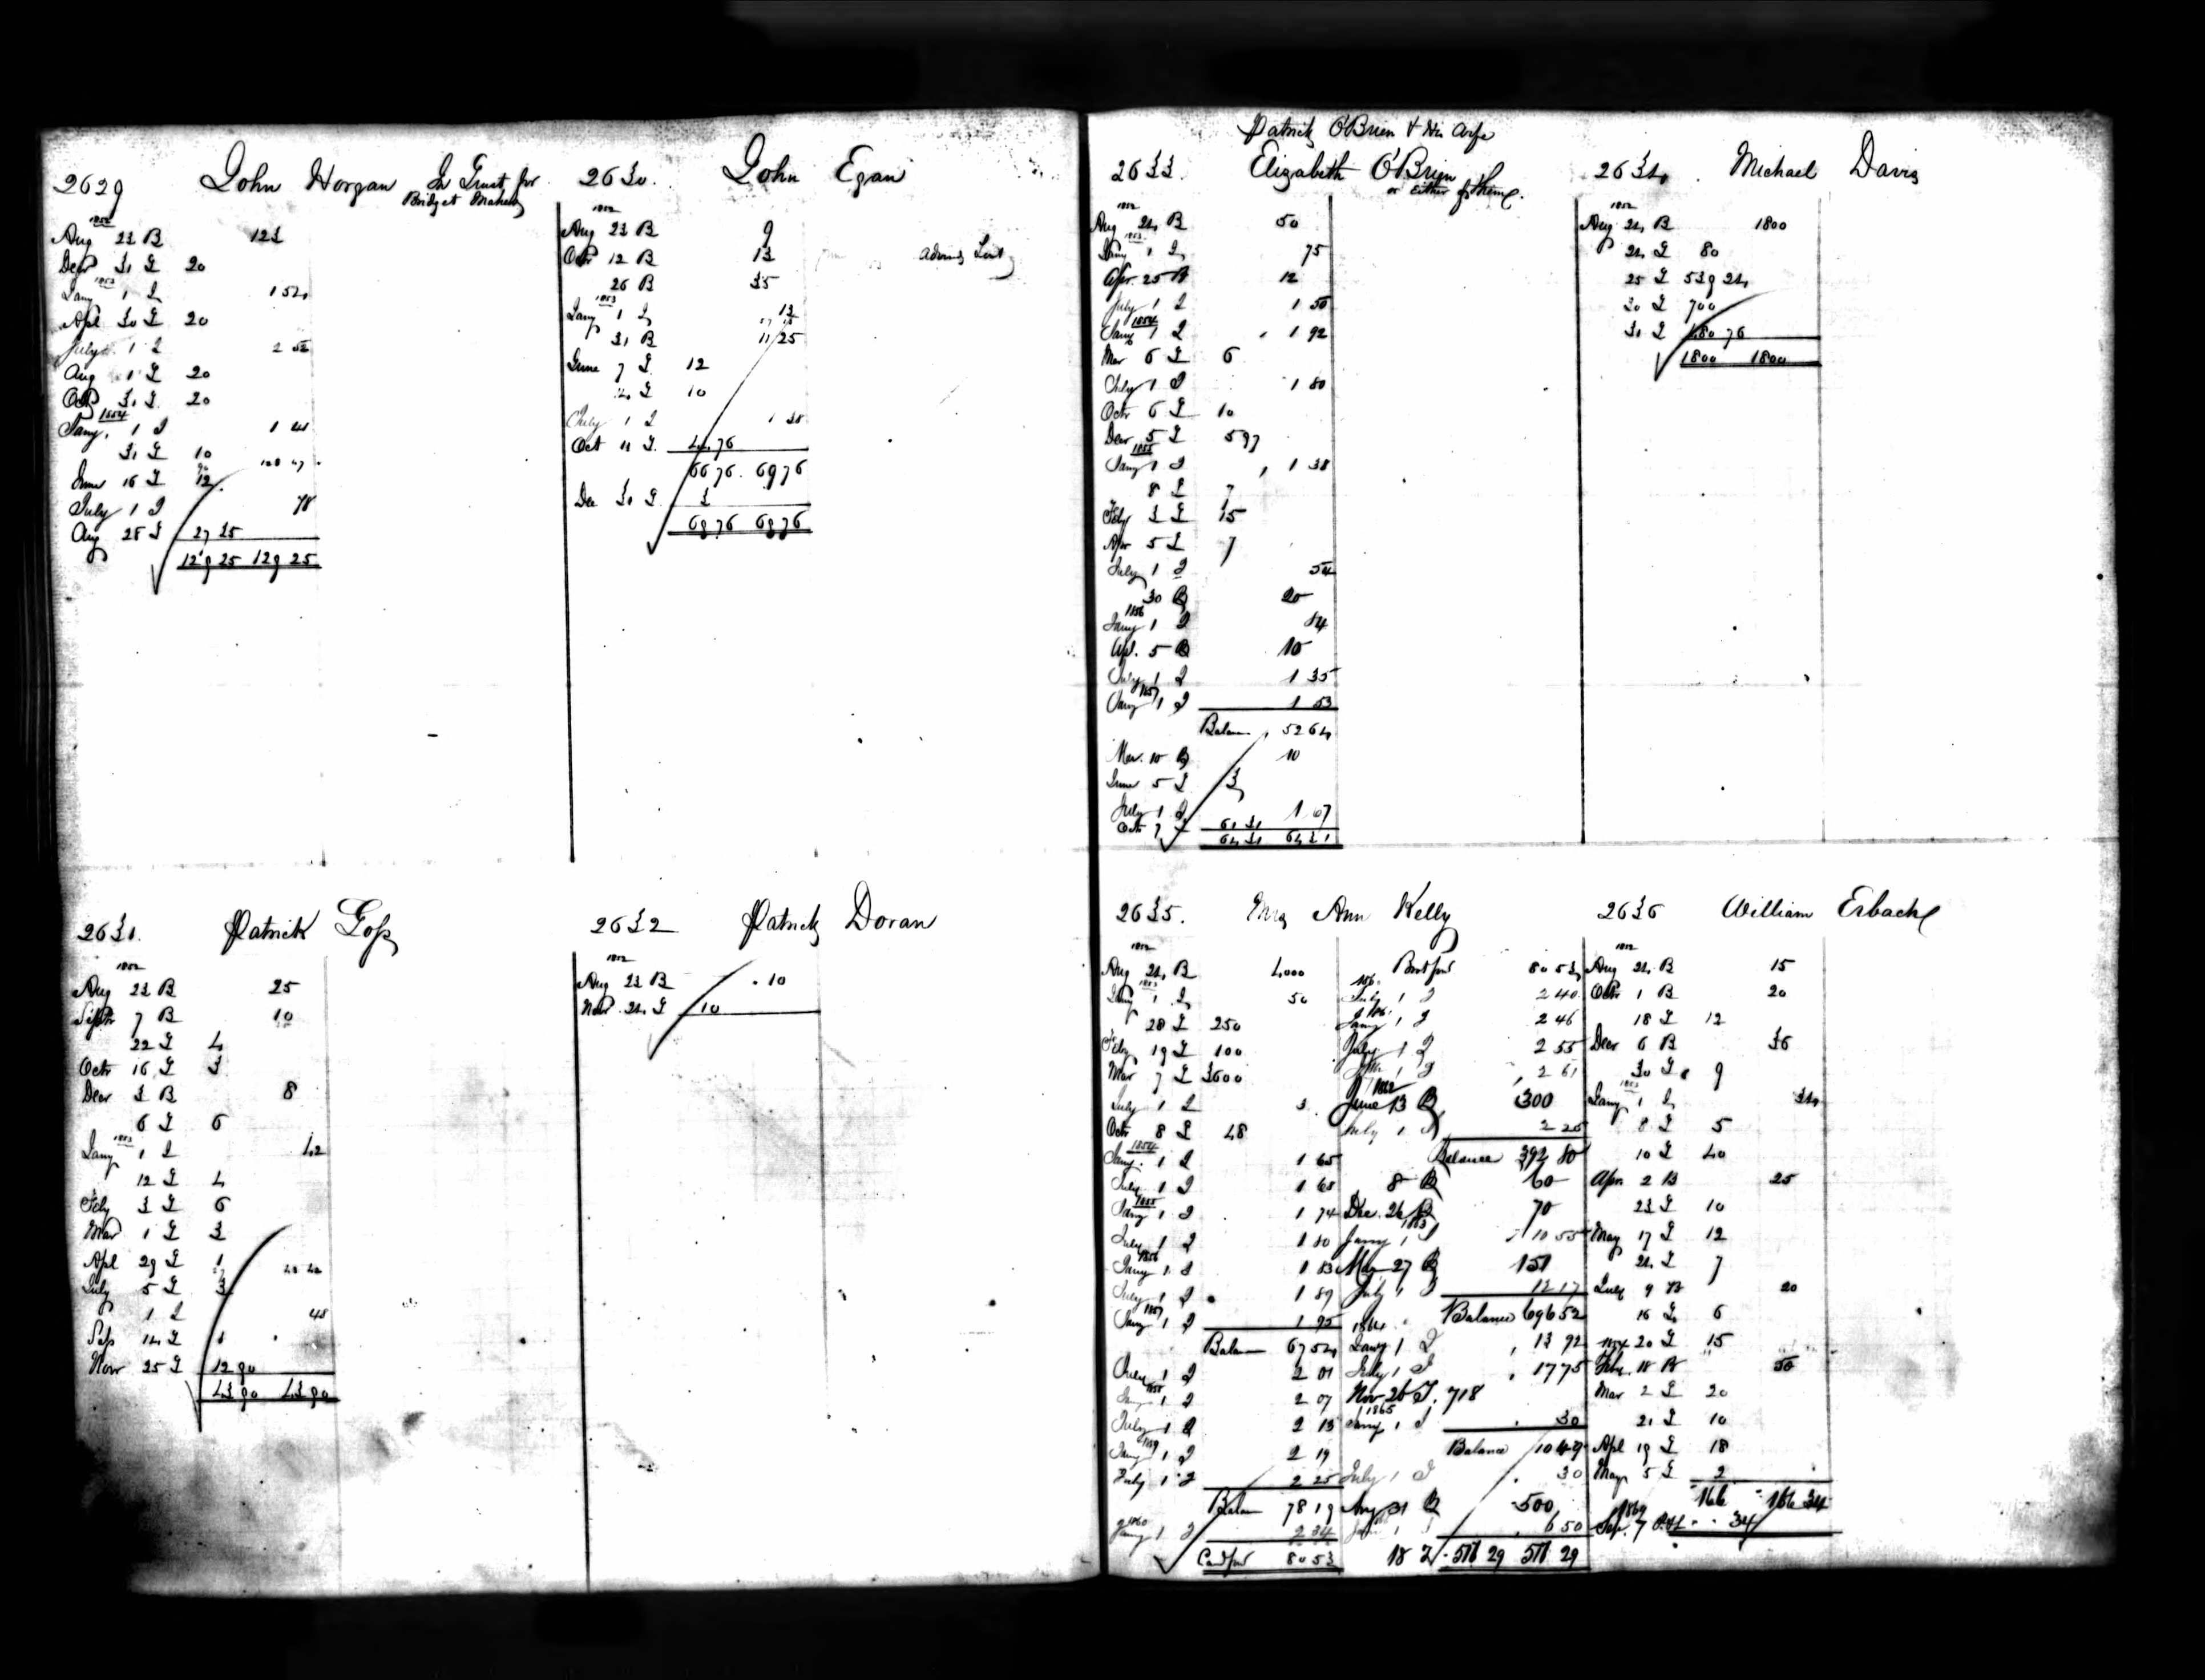 2629 John Horgan In Trust for
Bridget Mahony
1852
Aug 23 B 123
Decr 31 I 20
1853
Jany 1 I 1 54
Apl 30 I 20
July 1 I 2 52
Aug 1 I 20
Octr 31 I 20
1854
Jany 1 I 1 41
31 I 10
June 16 I 12
July 1 I 78
Aug 28 I 27 35
129 25 129 25
2630. John Egan
1852
Aug 23 B 9
Octr 12 B 13
26 B 35
1853
Jany 1 I 13
31 B 11 25
June 7 I 12
I 10
July 1 I 1 38
Oct 11 I 44 76
66 76 69 76
Dec 31 I 3
69 76 69 76
2631. Patrick Goss
1852
Aug 23 B 25
Septr 7 B 10
22 I 4
Octr 16 I 3
Decr 3 B 8
6 I 6
1853
Jany 1 I 42
12 I 4
Feby 3 I 6
Mar 1 I 3
Apl 29 I 1
July 5 I 3
1 I 48
Sep 14 I 1
Novr 25 I 12 90
43 90 43 90
2632 Patrick Doran
1852
Aug 23 B 10
Novr 24 I 10
Patrick O'Brien & his wife
2633. Elizabeth O'Brien
or either of them.
1852
Aug 24 B 50
1853
Jany 1 I 75
Apr. 25 B 12
July 1 I 1 50
1854
Jany 1 I 1 92
Mar 6 I 6
July 1 I 1 80
Octr 6 I 10
Decr 5 I 5 97
1855
Jany 1 I 1 38
8 I 7
Feby 3 I 15
Apr 5 I 7
July 1 I 54
30 B 20
1856
Jany 1 I 84
Apl. 5 B 10
July 1 I 1 35
1857
Jany 1 I 1 53
Balance 52 64
Mar. 10 B 10
June 5 I 3
July 1 I 1 67
Octr 7 I 61 31
64 31 64 31
2634. Michael Davis
1852
Aug 24 B 1800
24 I 80
25 I 539 24
30 I 700
31 I 480 76
1800 1800
2635. Mrs Ann Kelly
1852
Aug 24 B 4000
1853
Jany 1 I 50
28 I 250
Feby 19 I 100
Mar 7 I 3600
July 1 I 3
Octr 8 I 48
1854
Jany 1 I 1 65
July 1 I 1 68
1855
Jany 1 I 1 74
July 1 I 1 80
1856
Jany 1 I 1 83
July 1 I 1 89
1857
Jany 1 I 1 95
Balance 67 54
July 1 I 2 01
1858
Jany 1 I 2 07
July 1 I 2 13
1859
Jany 1 I 2 19
July 1 I 2 25
Balance 78 19
1860
Jany 1 I 2 34
Cardfwd 80 53
Brotfwd 80 53
July 1 I 2 40
Jany 1 I 2 46
July 1 I 2 55
1 I 2 61
1862
June 13 B 300
July 1 I 2 25
Balance 392 80
8 B 60
Dec. 26 B 70
1863
Jany 1 I 10 55
May 27 B 151
July 1 I 12 17
Balance 696 52
1864
Jany 1 I 13 92
July 1 I 17 75
Nov 26 I. 718
1865
Jany 1 I 30
Balance 10 49
July 1 I 30
Aug 31 B 500
1 I 6 50
18 I 517 29 517 29
2636 William Erbach
1852
Aug 24 B 15
Octr 1 B 20
18 I 12
Decr 6 B 36
30 I 9
1853
Jany 1 I 34
8 I 5
10 I 40
Apr 2 B 25
23 I 10
May 17 I 12
24 I 7
July 9 B 20
16 I 6
1854 20 I 15
Feby. 18 B 50
Mar 2 I 20
21 I 10
Apl 19 I 18
May 5 I 2
166 166 34
1869
Sep. 7 34